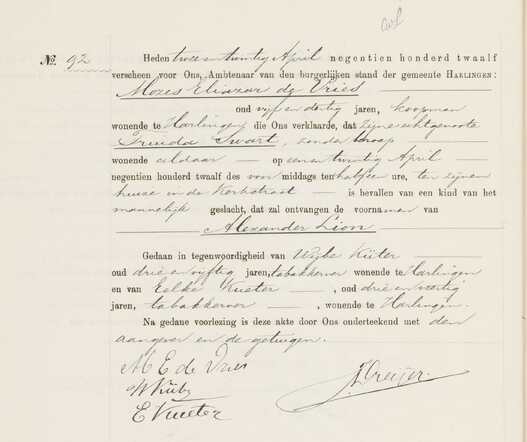 No. 92
Heden twee en twintig April negentien honderd twaalf
verscheen voor Ons, Ambtenaar van den burgerlijken stand der gemeente HARLINGEN:
Mozes Eliazar de Vries
oud vijf en dertig jaren, koopman
wonende te Harlingen die Ons verklaarde, dat zijne echtgenoote
Froukje Swart, zonder beroep
wonende aldaar — op een en twintig April
negentien honderd twaalf des voor middags ten half zes ure, ten zijnen
huize in de Kerkstraat — is bevallen van een kind van het
mannelijk geslacht, dat zal ontvangen de voornamen van
Alexander Léon
Gedaan in tegenwoordigheid van Wijbe Küter —
oud drie en vijftig jaren, tabakkerver wonende te Harlingen
en van Eelke Kueter —, oud drie en veertig
jaren, tabakkerver —, wonende te Harlingen.
Na gedane voorlezing is deze akte door Ons onderteekend met den
aangever en de getuigen.
M E de Vries
W Küter
E Kueter